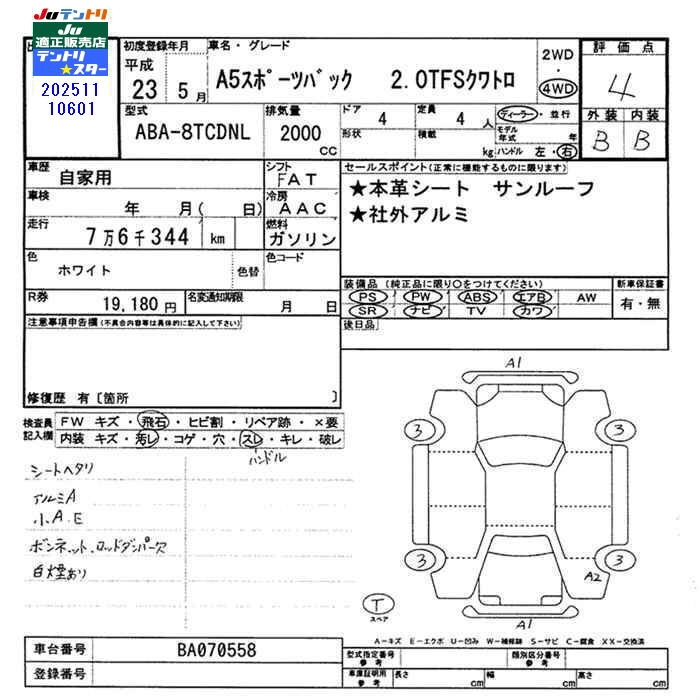 Juテントリ
Ju
適正販売店
テントリ
★スター
202511
10601
初度登録年月
平成
23 5月
車名・グレード
A5スポーツバック 2.0TFSクワトロ
2WD
・
4WD
評価点
4
外装 内装
B B
型式
ABA-8TCDNL
排気量
2000
CC
ドア
4
形状
定員
4 人
積載
kg
ディーラー・並行
モデル年式 年
ハンドル 左・右
車歴
自家用
シフト
FAT
車検
年 月( 日)
冷房
AAC
走行
7万6千344 km
燃料
ガソリン
色
ホワイト
色替
色コード
R券
19,180円
名変通知期限
月 日
セールスポイント(正常に機能するものに限ります)
★本革シート サンルーフ
★社外アルミ
装備品(純正品に限り○をつけてください)
PS PW ABS エアB AW
SR ナビ TV カワ
新車保証書
有・無
後日品
注意事項申告欄(不具合内容等は具体的に記入して下さい)
修復歴 有〔箇所 〕
検査員記入欄
FW キズ・飛石・ヒビ割・リペア跡・×要
内装 キズ・汚レ・コゲ・穴・スレ・キレ・破レ
ハンドル
シートヘタリ
アルミA
小A.E
ボンネット.ロッドダンパー欠
白煙あり
A1
3 3
3 3
A2
T
スペア
A1
A-キズ E-エクボ U-凹み W-補修跡 S-サビ C-腐食 XX-交換済
車台番号
BA070558
登録番号
型式指定番号
参考
類別区分番号
参考
車庫証明用
参考
長さ cm
幅 cm
高さ cm